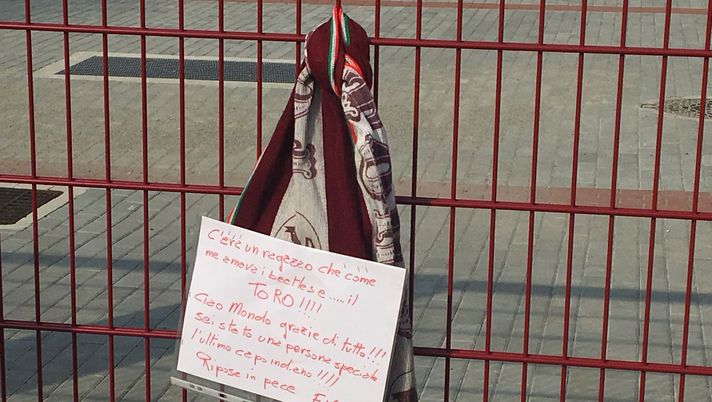 C'era un ragazzo che come
me amava i beetles e .... il
TORO!!!!
Ciao Mondo grazie di tutto!!!
sei stato una persona speciale
l'ultimo capo indiano!!!!
Ripose in pece